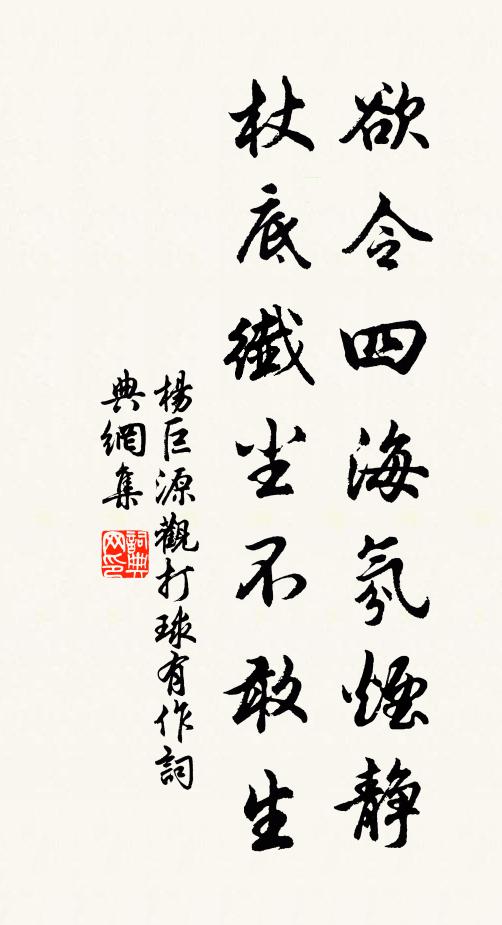 欲令四海氛煙静
杖底纖尘不敢生
楊巨源觀打球有作詞
典網集
詞典网印